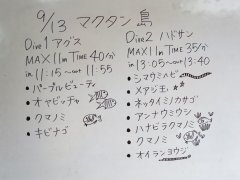 9/13 マクタン島
Dive1 アグス
MAX11m TIME 40/分
in 11:15～out 11:55
・パープルビューティ
・オヤビッチャ
・クマノミ
・キビナゴ
Dive2 ハドサン
MAX11m TIME 35/分
in 13:05～out 13:40
・シマウミヘビ
・メタジ王
・ネッタイミノカサゴ
・アンナウミウシ
・ハナビラクマノミ
・クマノミ
・オイランヨウジ